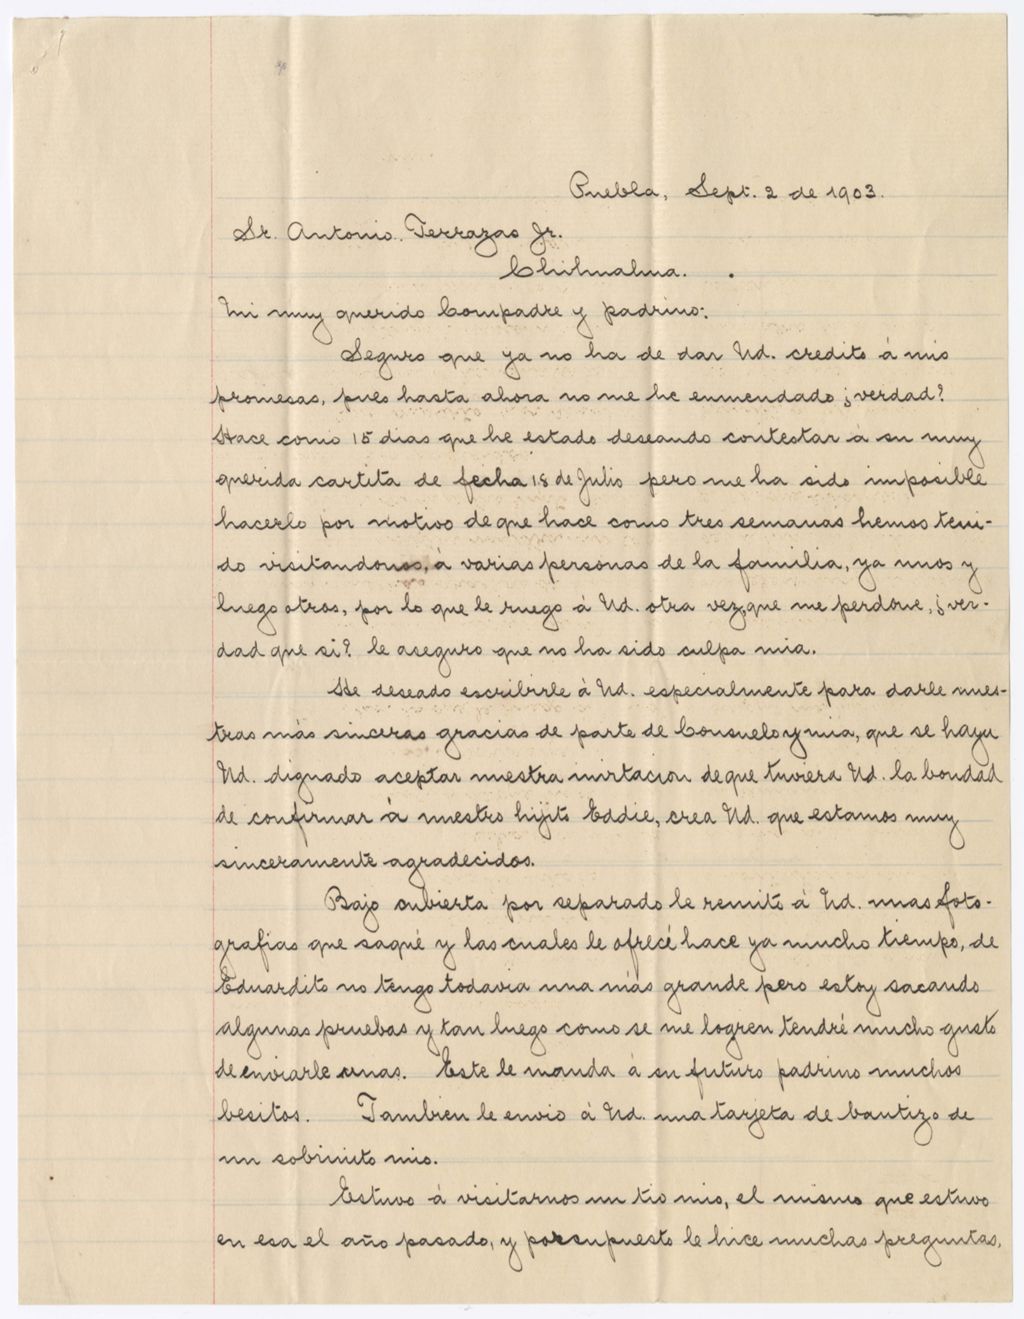 Puebla, Sept. 2 de 1903.
Sr. Antonio Terrazas Jr.
Chihuahua.
Mi muy querido Compadre y padrino:
Seguro que ya no ha de dar Ud. credito á mis
promesas, pues hasta ahora no me he enmendado ¿verdad?
Hace como 15 dias que he estado deseando contestar á su muy
querida cartita de fecha 18 de Julio pero me ha sido imposible
hacerlo por motivo de que hace como tres semanas hemos teni-
do visitandonos, á varias personas de la familia, ya unos y
luego otros, por lo que le ruego á Ud. otra vez, que me perdone, ¿ver-
dad que si? le aseguro que no ha sido culpa mia.
He deseado escribirle á Ud. especialmente para darle nues-
tras más sinceras gracias de parte de Consuelo y mia, que se haya
Ud. dignado aceptar nuestra invitacion de que tuviera Ud. la bondad
de confirmar á nuestro hijito Eddie, crea Ud. que estamos muy
sinceramente agradecidos.
Bajo cubierta por separado le remito á Ud. unas foto-
grafias que saqué y las cuales le ofrecé hace ya mucho tiempo, de
Eduardito no tengo todavia una más grande pero estoy sacando
algunas pruebas y tan luego como se me logren tendré mucho gusto
de enviarle unas. Este le manda á su futuro padrino muchos
besitos. Tambien le envio á Ud. una tarjeta de bautizo de
un sobrinito mio.
Estuvo á visitarnos un tio mio, el mismo que estuvo
en esa el año pasado, y por supuesto le hice muchas preguntas,